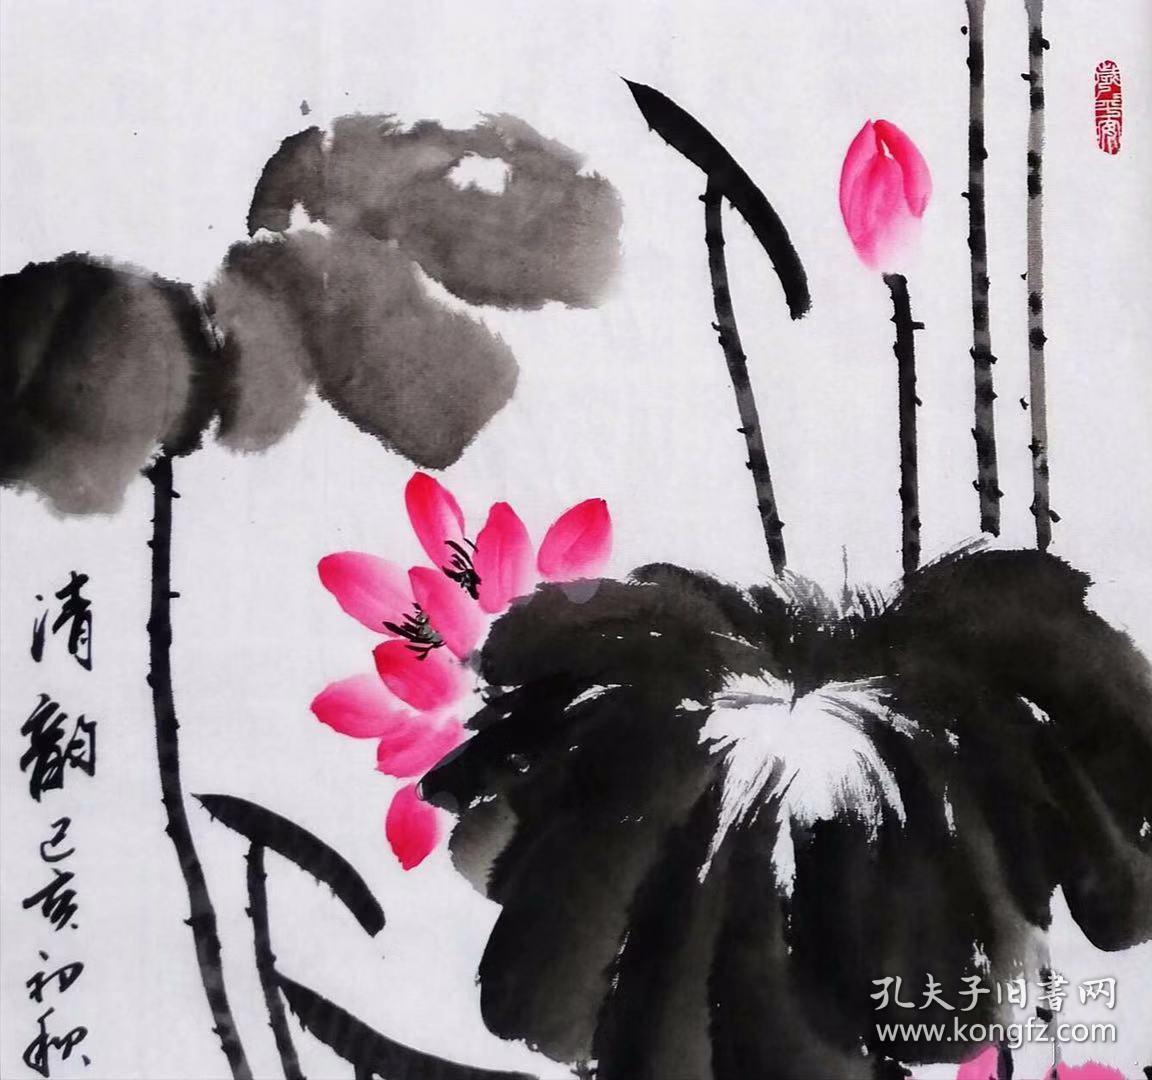 歲平安
清韵己亥初秋
孔夫子旧書网
www.kongfz.com